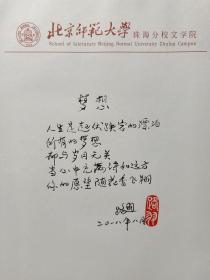 北京师范大学 珠海分校文学院
School of Literature Beijing Normal University Zhuhai Campus
梦想
人生是起伏跌宕的漂泊
所有的梦想
都与岁月无关
当心中充满诗和远方
你的愿望随花香飞翔
二〇一八年八月